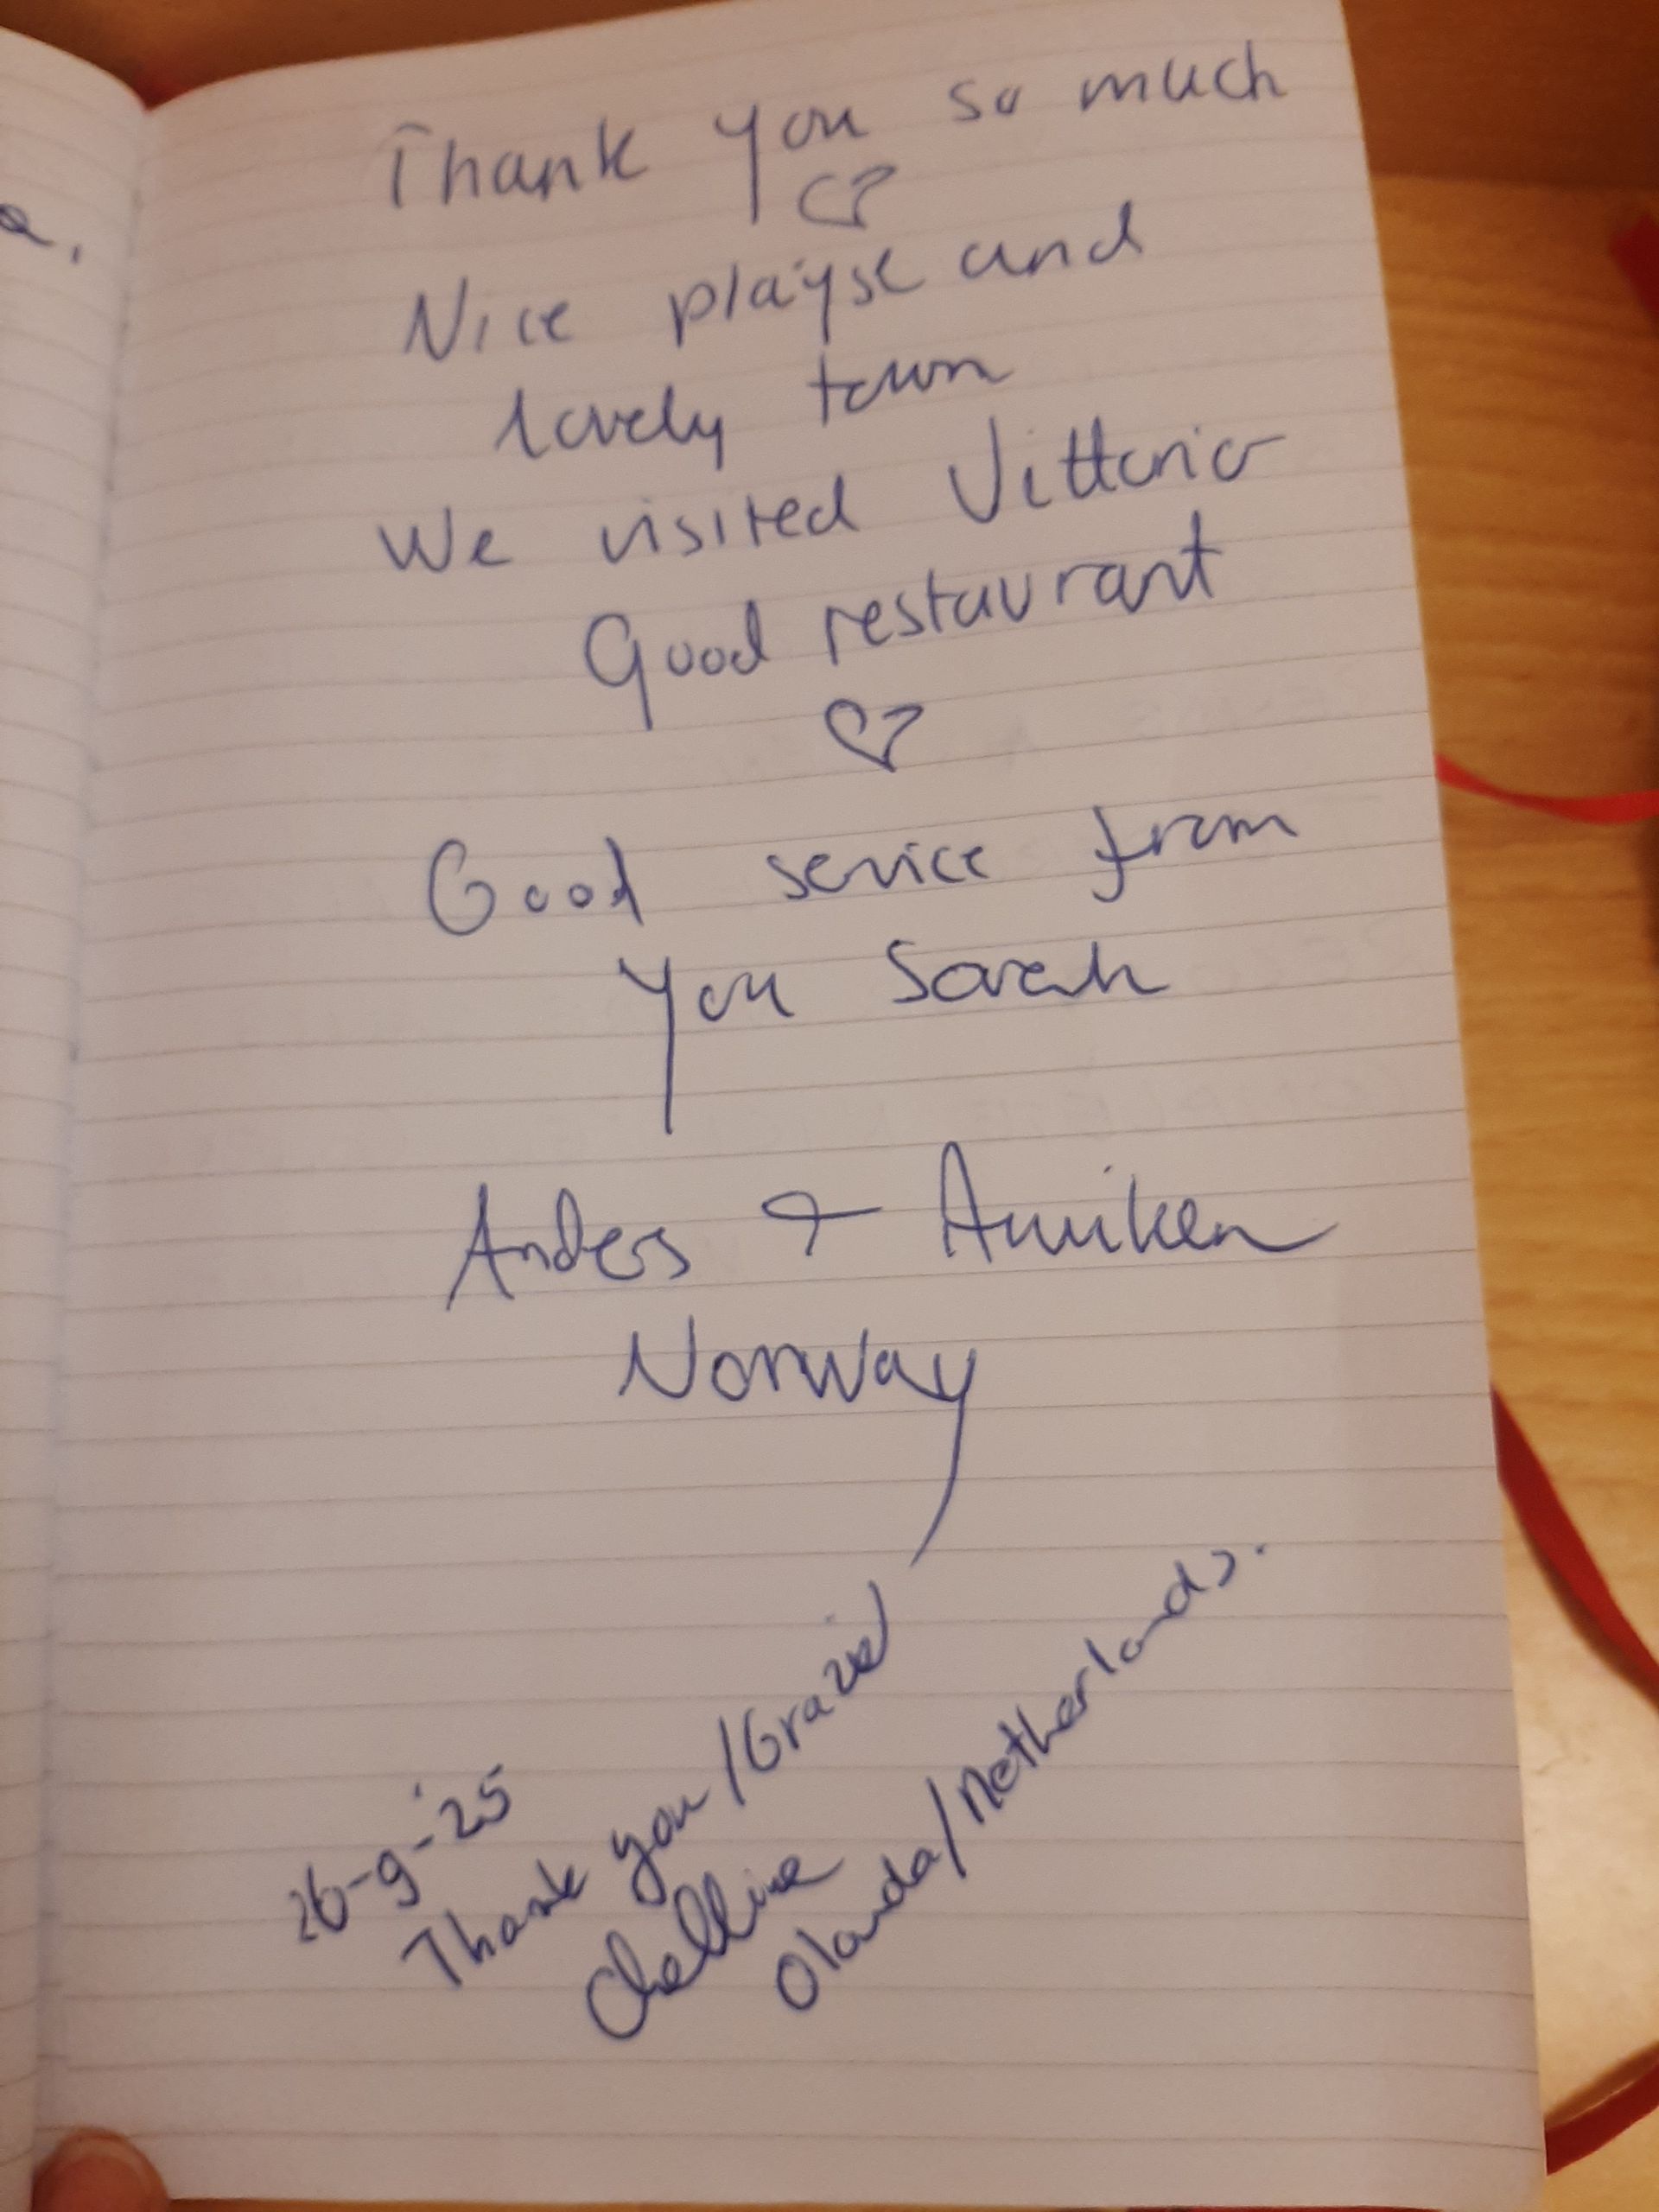 Thank you so much
♡
Nice playse and
lovely town
We visited Vittorio
Good restaurant
♡
Good service from
you Sarah
Anders & Anniken
Norway
26-9-'25
Thank you/Grazie
Olanda/Netherlands.